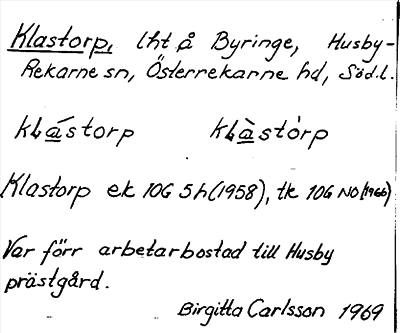 Klastorp, lht å Byringe, Husby-
Rekarne sn, Österrekarne hd, Söd.l.
kLá̲storp kLà̲stòrp
Klastorp ek 10G 5h (1958), tk 10G NO (1966)
Var förr arbetarbostad till Husby
prästgård.
Birgitta Carlsson 1969